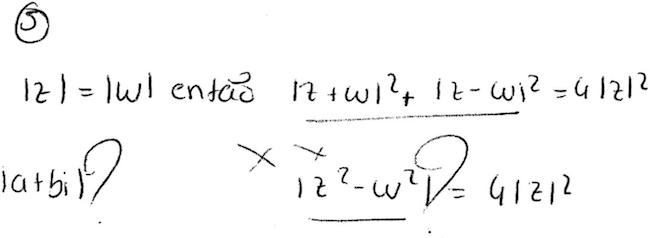 5
|z| = |w| então |z + w|² + |z - w|² = 4|z|²
|a+bi|? x x |z² - w²|? = 4|z|²